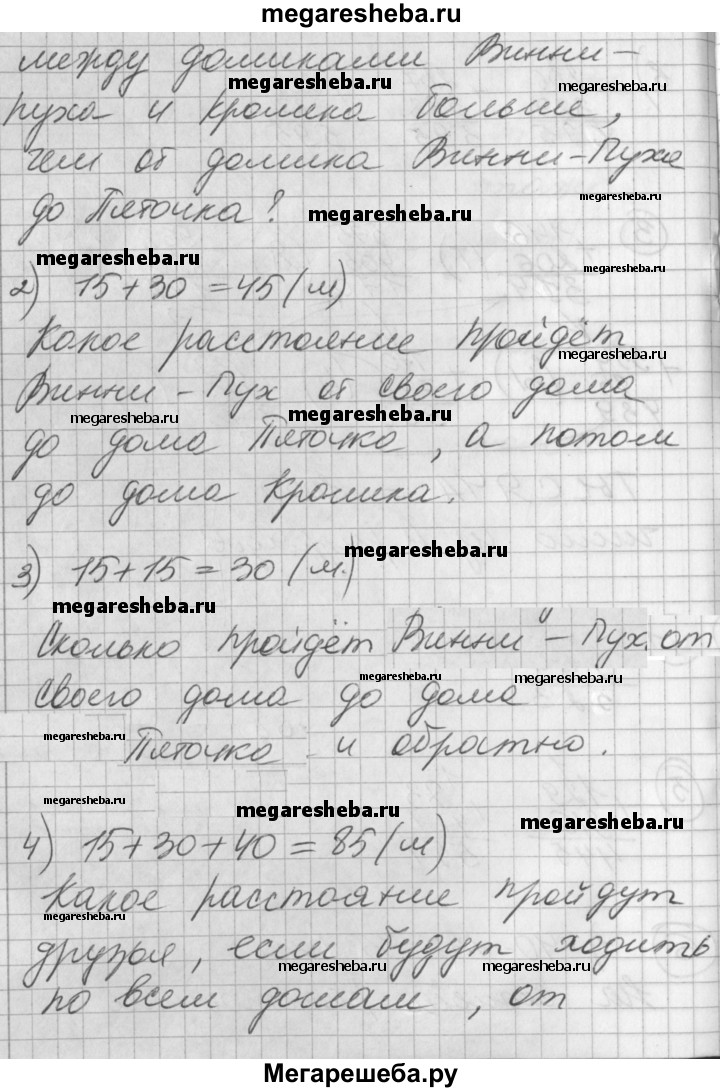 megaresheba.ru
между домиками Винни-
megaresheba.ru
megaresheba.ru
пуха и Кролика больше,
чем от домика Винни-Пуха
megaresheba.ru
до Пяточка? megaresheba.ru
megaresheba.ru
2) 15+30=45(м)
Какое расстояние пройдёт
megaresheba.ru
Винни-Пух от своего дома
megaresheba.ru
megaresheba.ru
до дома Пяточка, а потом
до дома Кролика.
megaresheba.ru
3) 15+15=30(м.)
megaresheba.ru
Сколько пройдёт Винни"-Пух от
megaresheba.ru
megaresheba.ru
своего дома до дома
megaresheba.ru
Пяточка и обратно.
megaresheba.ru
megaresheba.ru
megaresheba.ru
4) 15+30+40=85(м)
Какое расстояние пройдут
megaresheba.ru
друзья, если будут ходить
megaresheba.ru
megaresheba.ru
по всем домам, от
Мегарешеба.ру